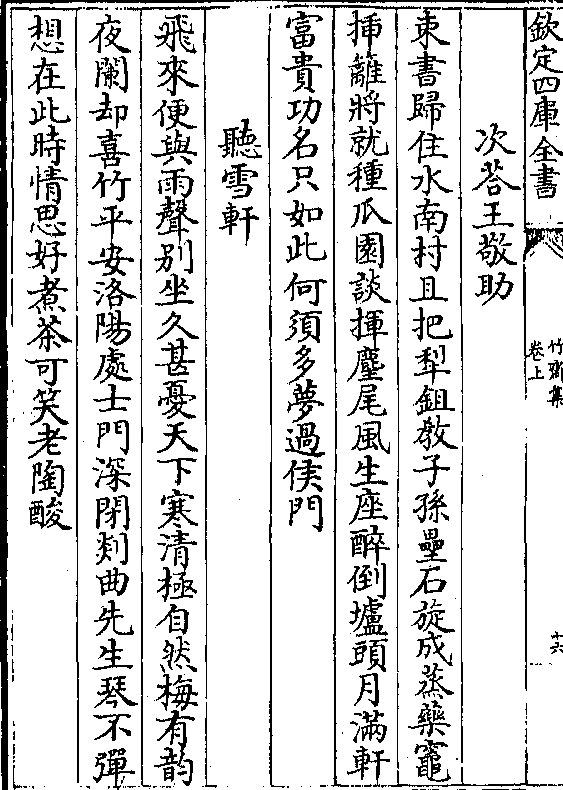 欽定四庫全書
竹齋集
卷上
十六
次荅王敬助
束書歸住水南村且把犁鉏敎子孫壘石旋成蒸藥竈
揷籬將就種瓜園談揮麈尾風生座醉倒壚頭月滿軒
富貴功名只如此何須多夢過侯門
聽雪軒
飛來便與雨聲别坐久甚憂天下寒清極自然梅有韵
夜闌却喜竹平安洛陽處士門深閉剡曲先生琴不彈
想在此時情思好煮茶可笑老陶酸